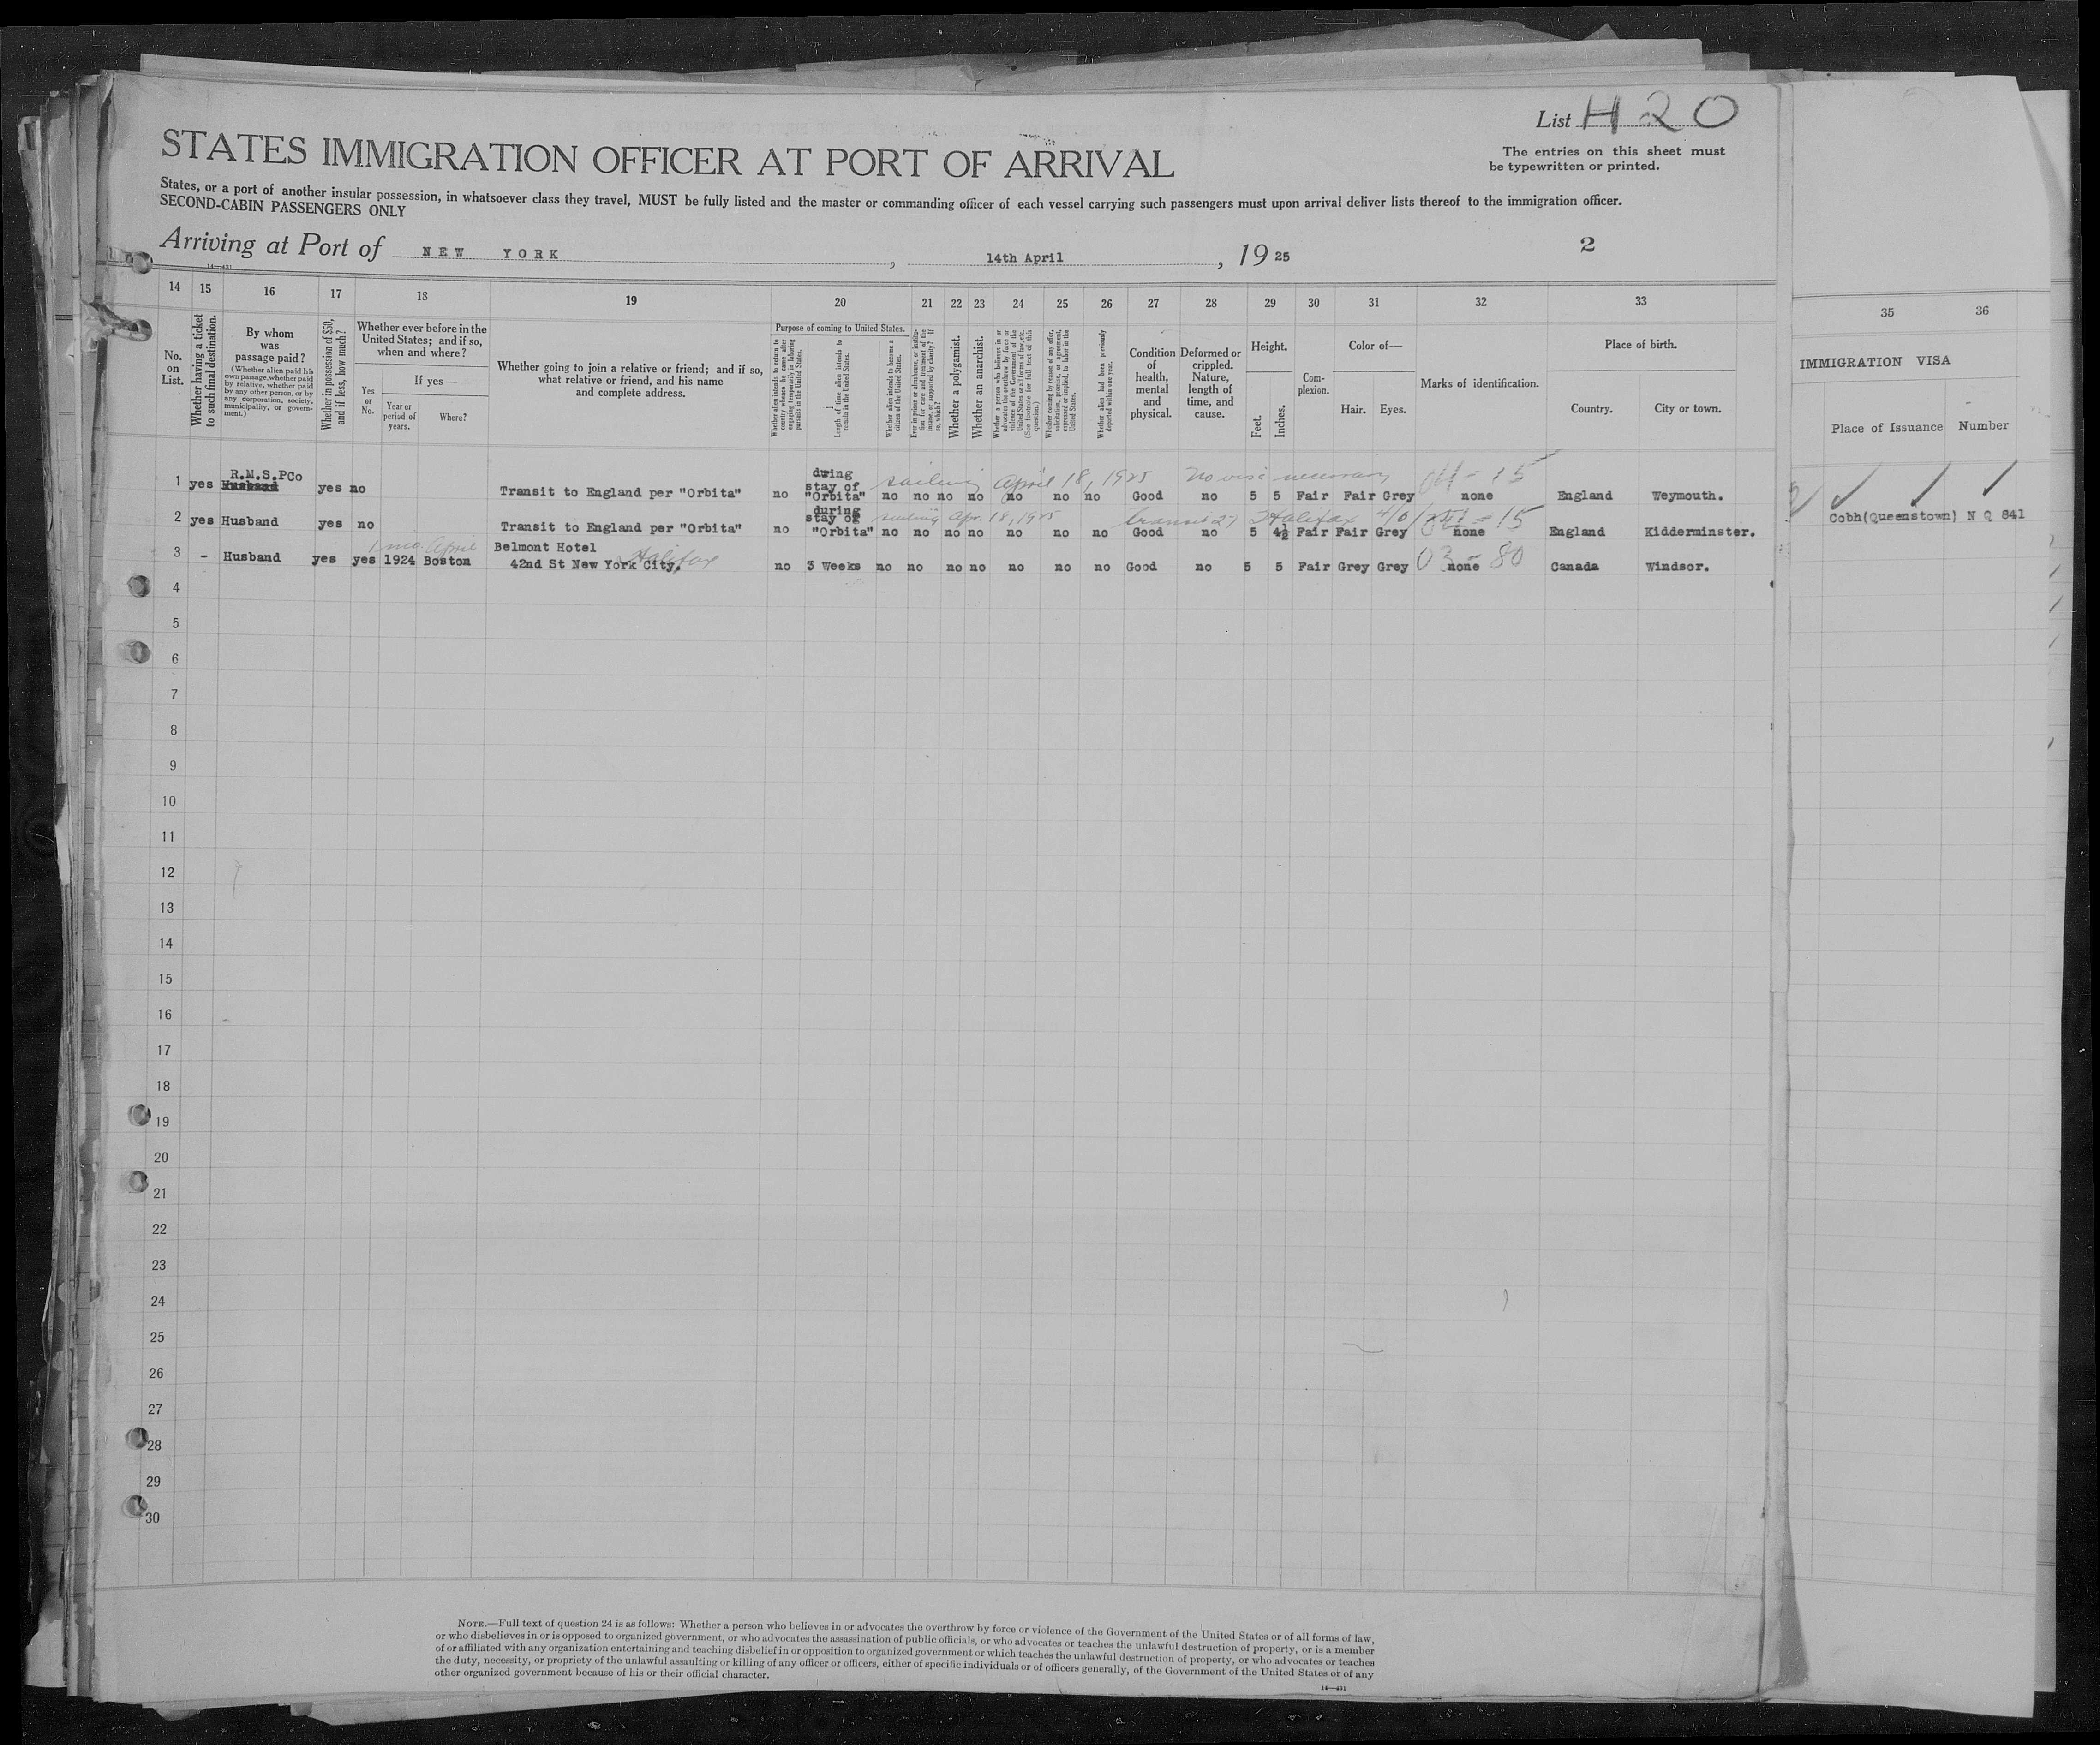 List H 20
The entries on this sheet must
be typewritten or printed.
STATES IMMIGRATION OFFICER AT PORT OF ARRIVAL
States, or a port of another insular possession, in whatsoever class they travel, MUST be fully listed and the master or commanding officer of each vessel carrying such passengers must upon arrival deliver lists thereof to the immigration officer.
SECOND-CABIN PASSENGERS ONLY
Arriving at Port of NEW YORK, 14th April, 1925
2
14—431
14 15 16 17 18 19 20 21 22 23 24 25 26 27 28 29 30 31 32 33 35 36
No. on List.
Whether having a ticket to such final destination.
By whom was passage paid?
(Whether alien paid his own passage, whether paid by relative, whether paid by any other person, or by any corporation, society, municipality, or government.)
Whether in possession of $50, and if less, how much?
Whether ever before in the United States; and if so, when and where?
Yes or No.
If yes—
Year or period of years.
Where?
Whether going to join a relative or friend; and if so, what relative or friend, and his name and complete address.
Purpose of coming to United States.
Whether alien intends to return to country whence he came after engaging temporarily in laboring pursuits in the United States.
Length of time alien intends to remain in the United States.
Whether alien intends to become a citizen of the United States.
Ever in prison or almshouse, or institution for care and treatment of the insane, or supported by charity? If so, which?
Whether a polygamist.
Whether an anarchist.
Whether a person who believes in or advocates the overthrow by force or violence of the Government of the United States or all forms of law, etc. (See footnote for full text of this question.)
Whether coming by reason of any offer, solicitation, promise, or agreement, expressed or implied, to labor in the United States.
Whether alien had been previously deported within one year.
Condition of health, mental and physical.
Deformed or crippled. Nature, length of time, and cause.
Height.
Feet.
Inches.
Complexion.
Color of—
Hair. Eyes.
Marks of identification.
Place of birth.
Country. City or town.
IMMIGRATION VISA
Place of Issuance Number
sailing April 18, 1925 No visa necessary - 15
1 yes R.M.S.PCo Husband yes no Transit to England per "Orbita" no during stay of "Orbita" no no no no no no no Good no 5 5 Fair Fair Grey none England Weymouth.
sailing Apr. 18, 1925 transit Halifax = 15
2 yes Husband yes no Transit to England per "Orbita" no during stay of "Orbita" no no no no no no no Good no 5 4½ Fair Fair Grey none England Kidderminster.
Cobh(Queenstown) N Q 841
1 mo. April Halifax 03 = 80
3 - Husband yes yes 1924 Boston Belmont Hotel
42nd St New York City. no 3 Weeks no no no no no no no Good no 5 5 Fair Grey Grey none Canada Windsor.
4
5
6
7
8
9
10
11
12
13
14
15
16
17
18
19
20
21
22
23
24
25
26
27
28
29
30
NOTE.—Full text of question 24 is as follows: Whether a person who believes in or advocates the overthrow by force or violence of the Government of the United States or of all forms of law,
or who disbelieves in or is opposed to organized government, or who advocates the assassination of public officials, or who advocates or teaches the unlawful destruction of property, or is a member
of or affiliated with any organization entertaining and teaching disbelief in or opposition to organized government or which teaches the unlawful destruction of property, or who advocates or teaches
the duty, necessity, or propriety of the unlawful assaulting or killing of any officer or officers, either of specific individuals or of officers generally, of the Government of the United States or of any
other organized government because of his or their official character.
14—431